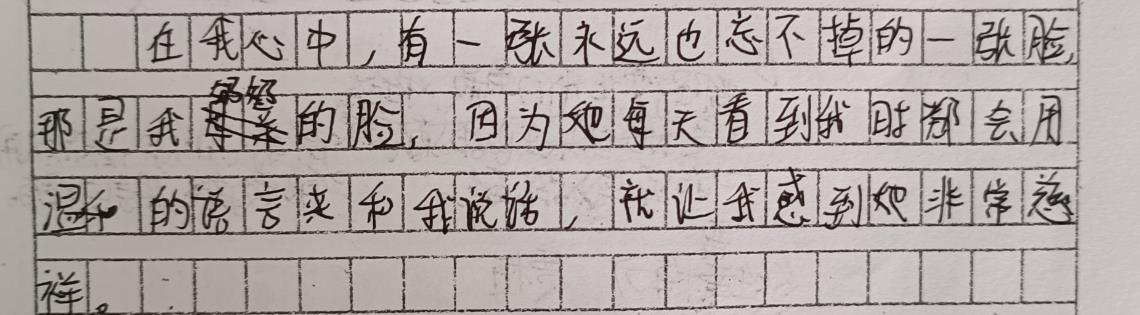 在我心中,有一张永远也忘不掉的一张脸,
那是我奶奶的脸,因为她每天看到我时都会用
温和的语言来和我说话,就让我感到她非常慈
祥。